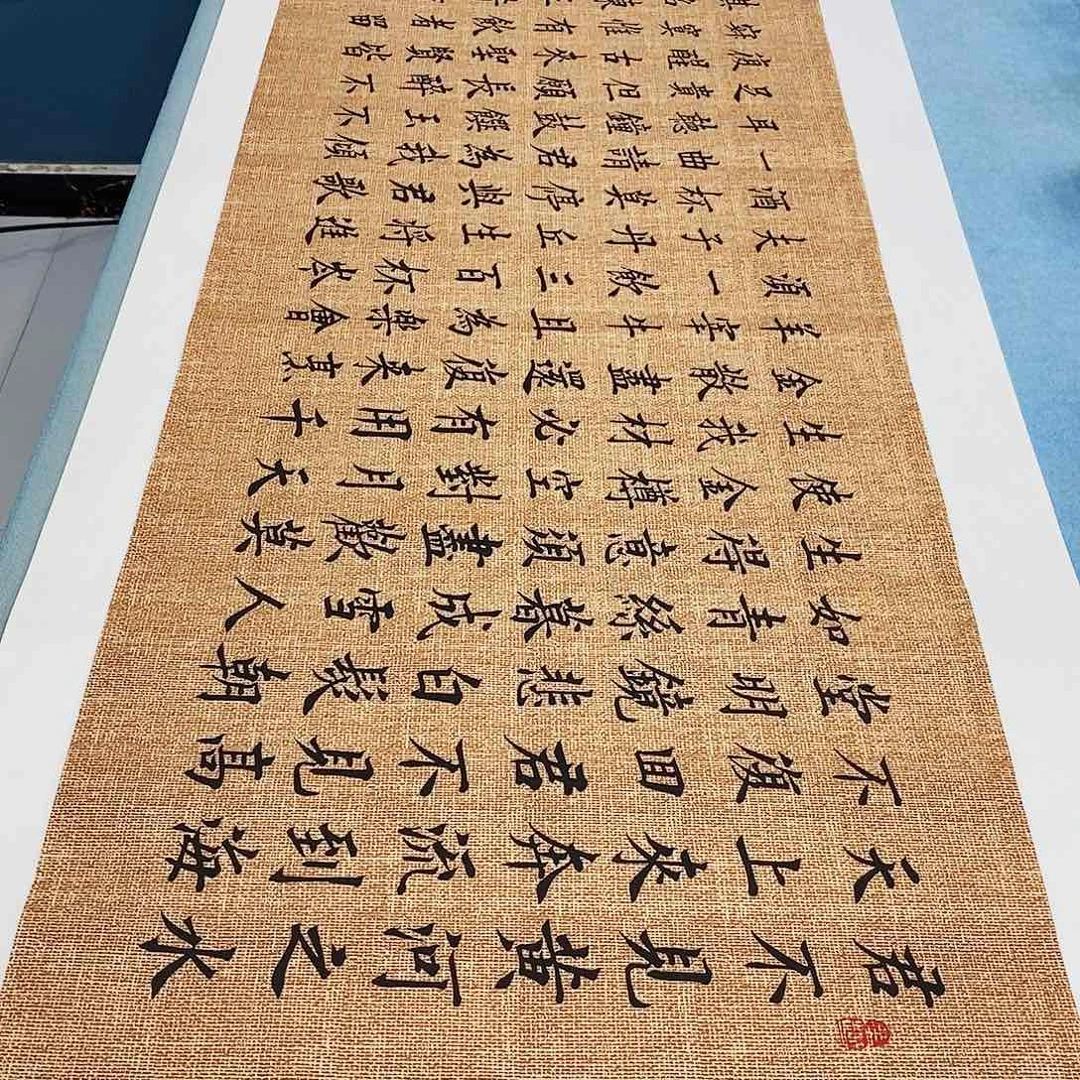 君不見黃河之水
天上來奔流到海
不復回君不見高
堂明鏡悲白髮朝
如青絲暮成雪人
生得意須盡歡莫
使金樽空對月天
生我材必有用千
金散盡還復來烹
羊宰牛且為樂會
須一飲三百杯岑
夫子丹丘生將進
酒杯莫停與君歌
一曲請君為我傾
耳聽鐘鼓饌玉不
足貴但願長醉不
復醒古來聖賢皆
寂寞惟有飲者留
其名陳